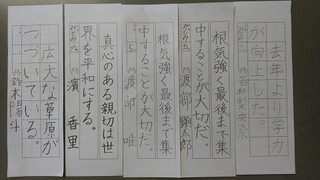 去年より学力
が向上した。
根気強く最後まで集
中することが大切だ。
渡部 顕太郎
根気強く最後まで集
中することが大切だ。
真心のある親切は世
界を平和にする。
濱 香里
広大な草原が
つづいている。
鈴木陽斗